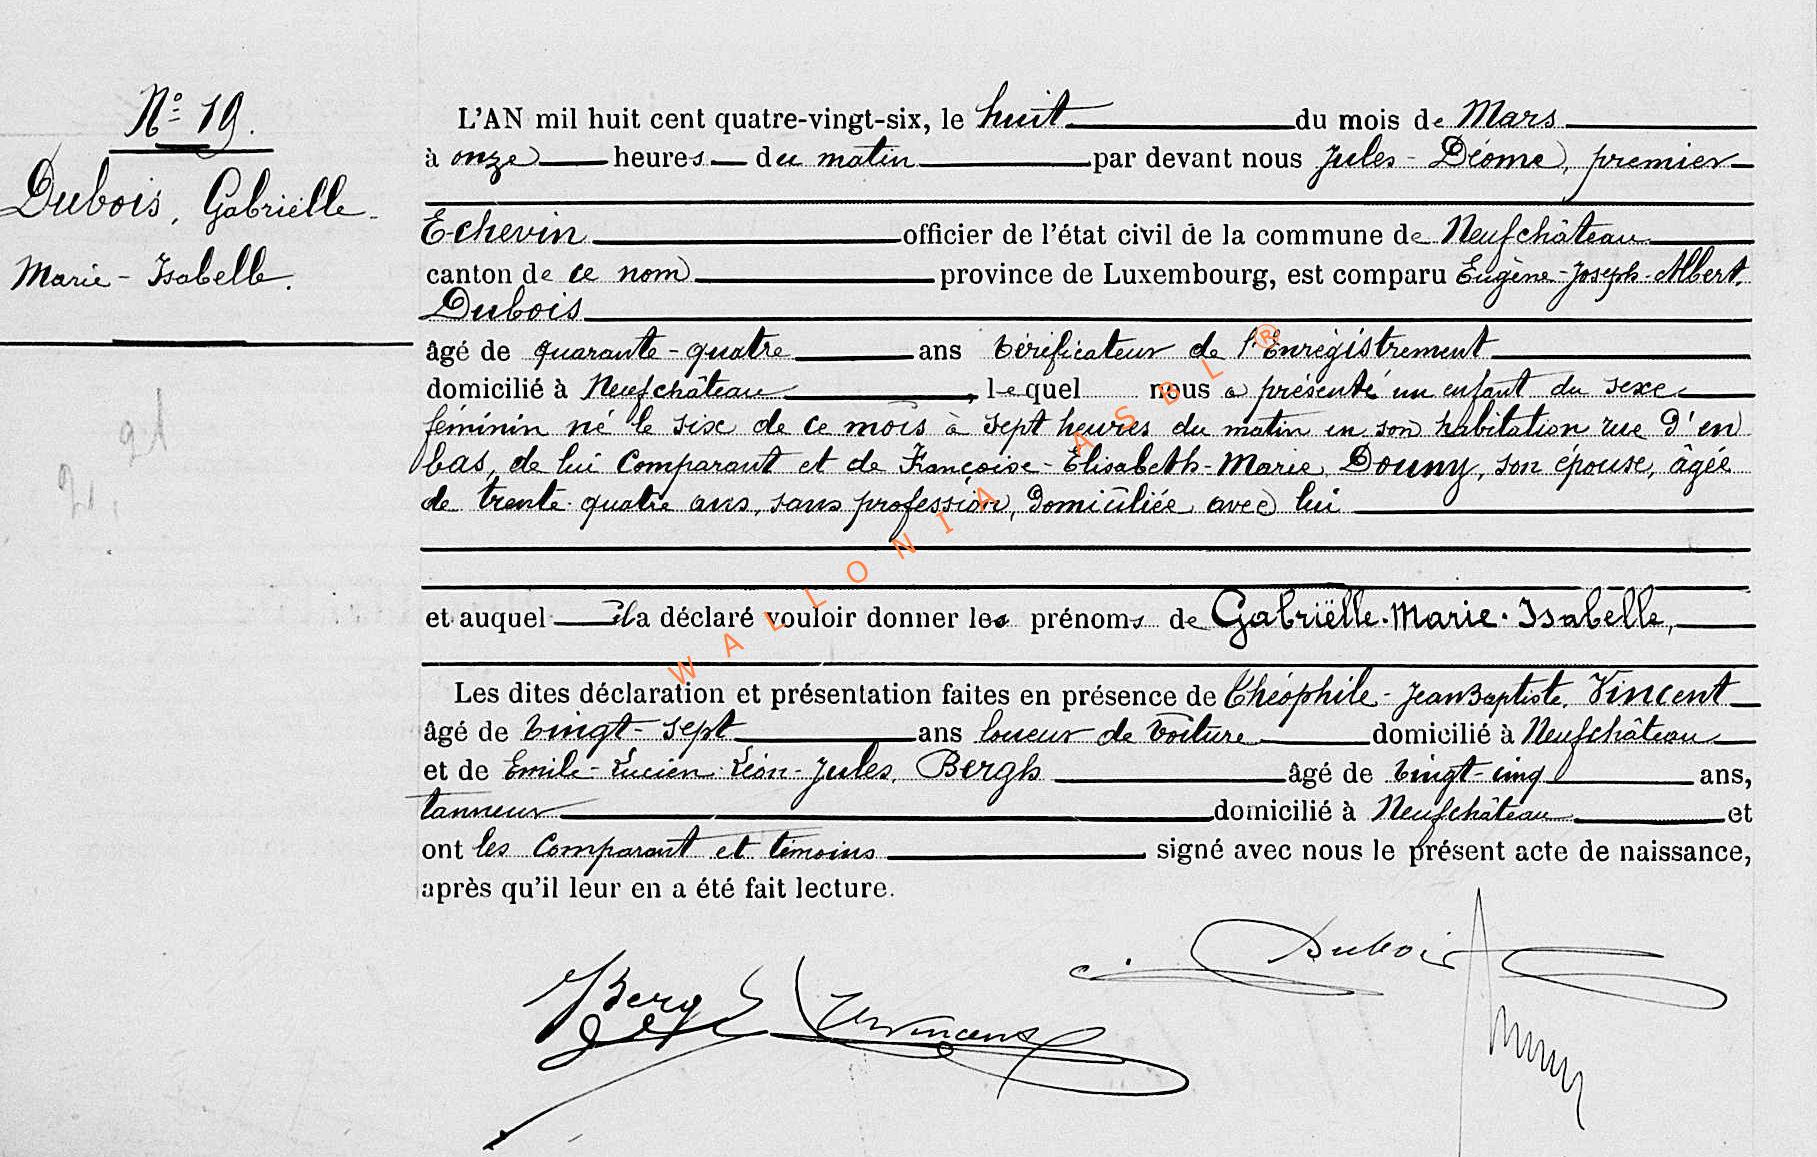 N° 19.
Dubois, Gabriëlle-
Marie-Isabelle.
L'AN mil huit cent quatre-vingt-six, le huit du mois de Mars
à onze heures du matin par devant nous Jules Déome, premier
Echevin officier de l'état civil de la commune de Neufchâteau
canton de ce nom province de Luxembourg, est comparu Eugène-Joseph-Albert
Dubois
âgé de quarante-quatre ans Vérificateur de l'Enrégistrement
domicilié à Neufchâteau, lequel nous a présenté un enfant du sexe
féminin né le six de ce mois à sept heures du matin en son habitation rue d'en
bas, de lui Comparant et de Françoise-Elisabeth-Marie Douny, son épouse, âgée
de trente-quatre ans, sans profession, domiciliée avec lui
et auquel il a déclaré vouloir donner les prénoms de Gabriëlle-Marie-Isabelle,
Les dites déclaration et présentation faites en présence de Théophile-Jean Baptiste Vincent
âgé de vingt-sept ans loueur de Voiture domicilié à Neufchâteau
et de Emile-Lucien-Léon-Jules Bergh âgé de vingt-cinq ans,
tanneur domicilié à Neufchâteau et
ont les Comparant et témoins signé avec nous le présent acte de naissance,
après qu'il leur en a été fait lecture.
Dubois
Bergh Vincent
WALLONIA ASBL ®